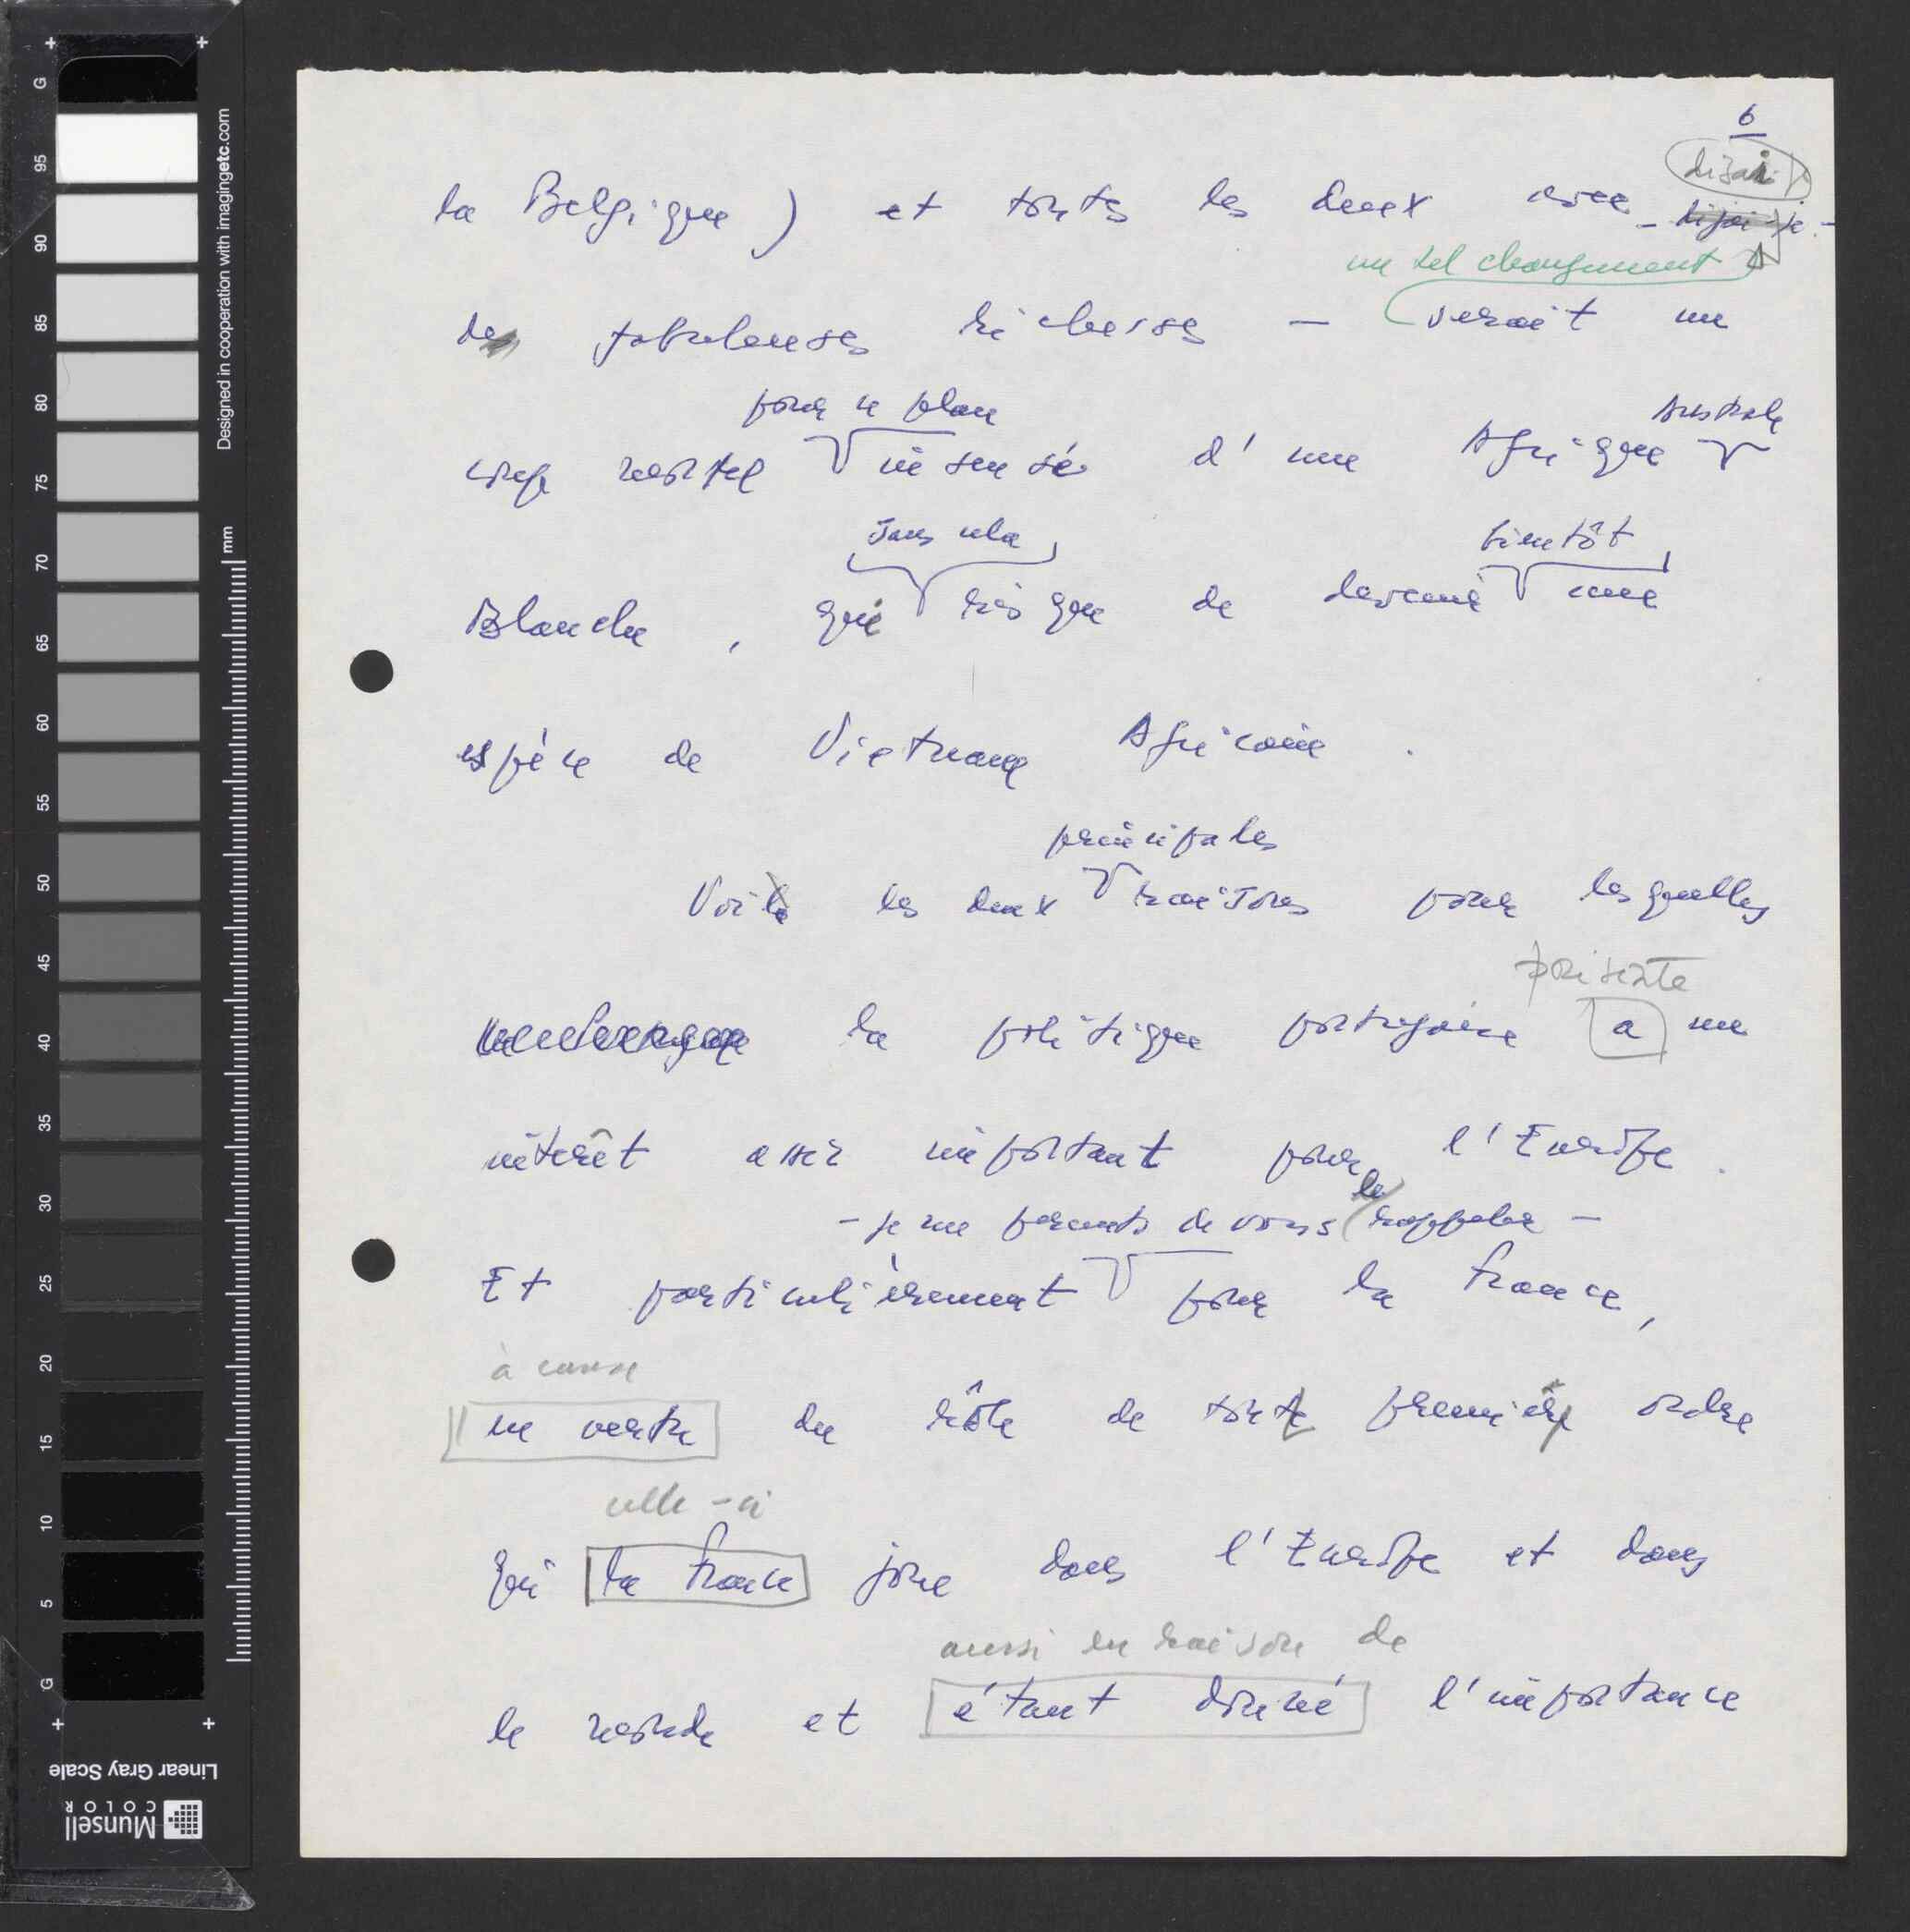 6
disais
la Belgique) et toutes les deux avec
un tel changement
de fabuleuses richesses — serait un
pour ce plan
Australe
coup mortel insensé d'une Afrique
sans cela
bientôt
Blanche, qui risque de devenir une
espèce de Vietnam Africain.
principales
Voilà les deux raisons pour lesquelles
présente
la politique portugaise a un
intérêt assez important pour l'Europe.
le
- je me permets de vous rappeler -
Et particulièrement pour la France,
à cause
en vertu du rôle de tout premier ordre
celle-ci
qui la France joue dans l'Europe et dans
aussi en raison de
le monde et étant donné l'importance
G
95
90
85
80
75
70
65
60
55
50
45
40
35
30
25
20
15
10
5
G
Designed in cooperation with imagingetc.com
mm
Linear Gray Scale
Munsell
COLOR